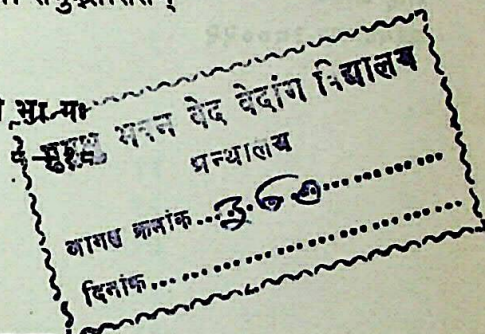 मुमुक्षु भवन वेद वेदांग विद्यालय
ग्रन्थालय
आगत क्रमांक....360............
दिनांक................................